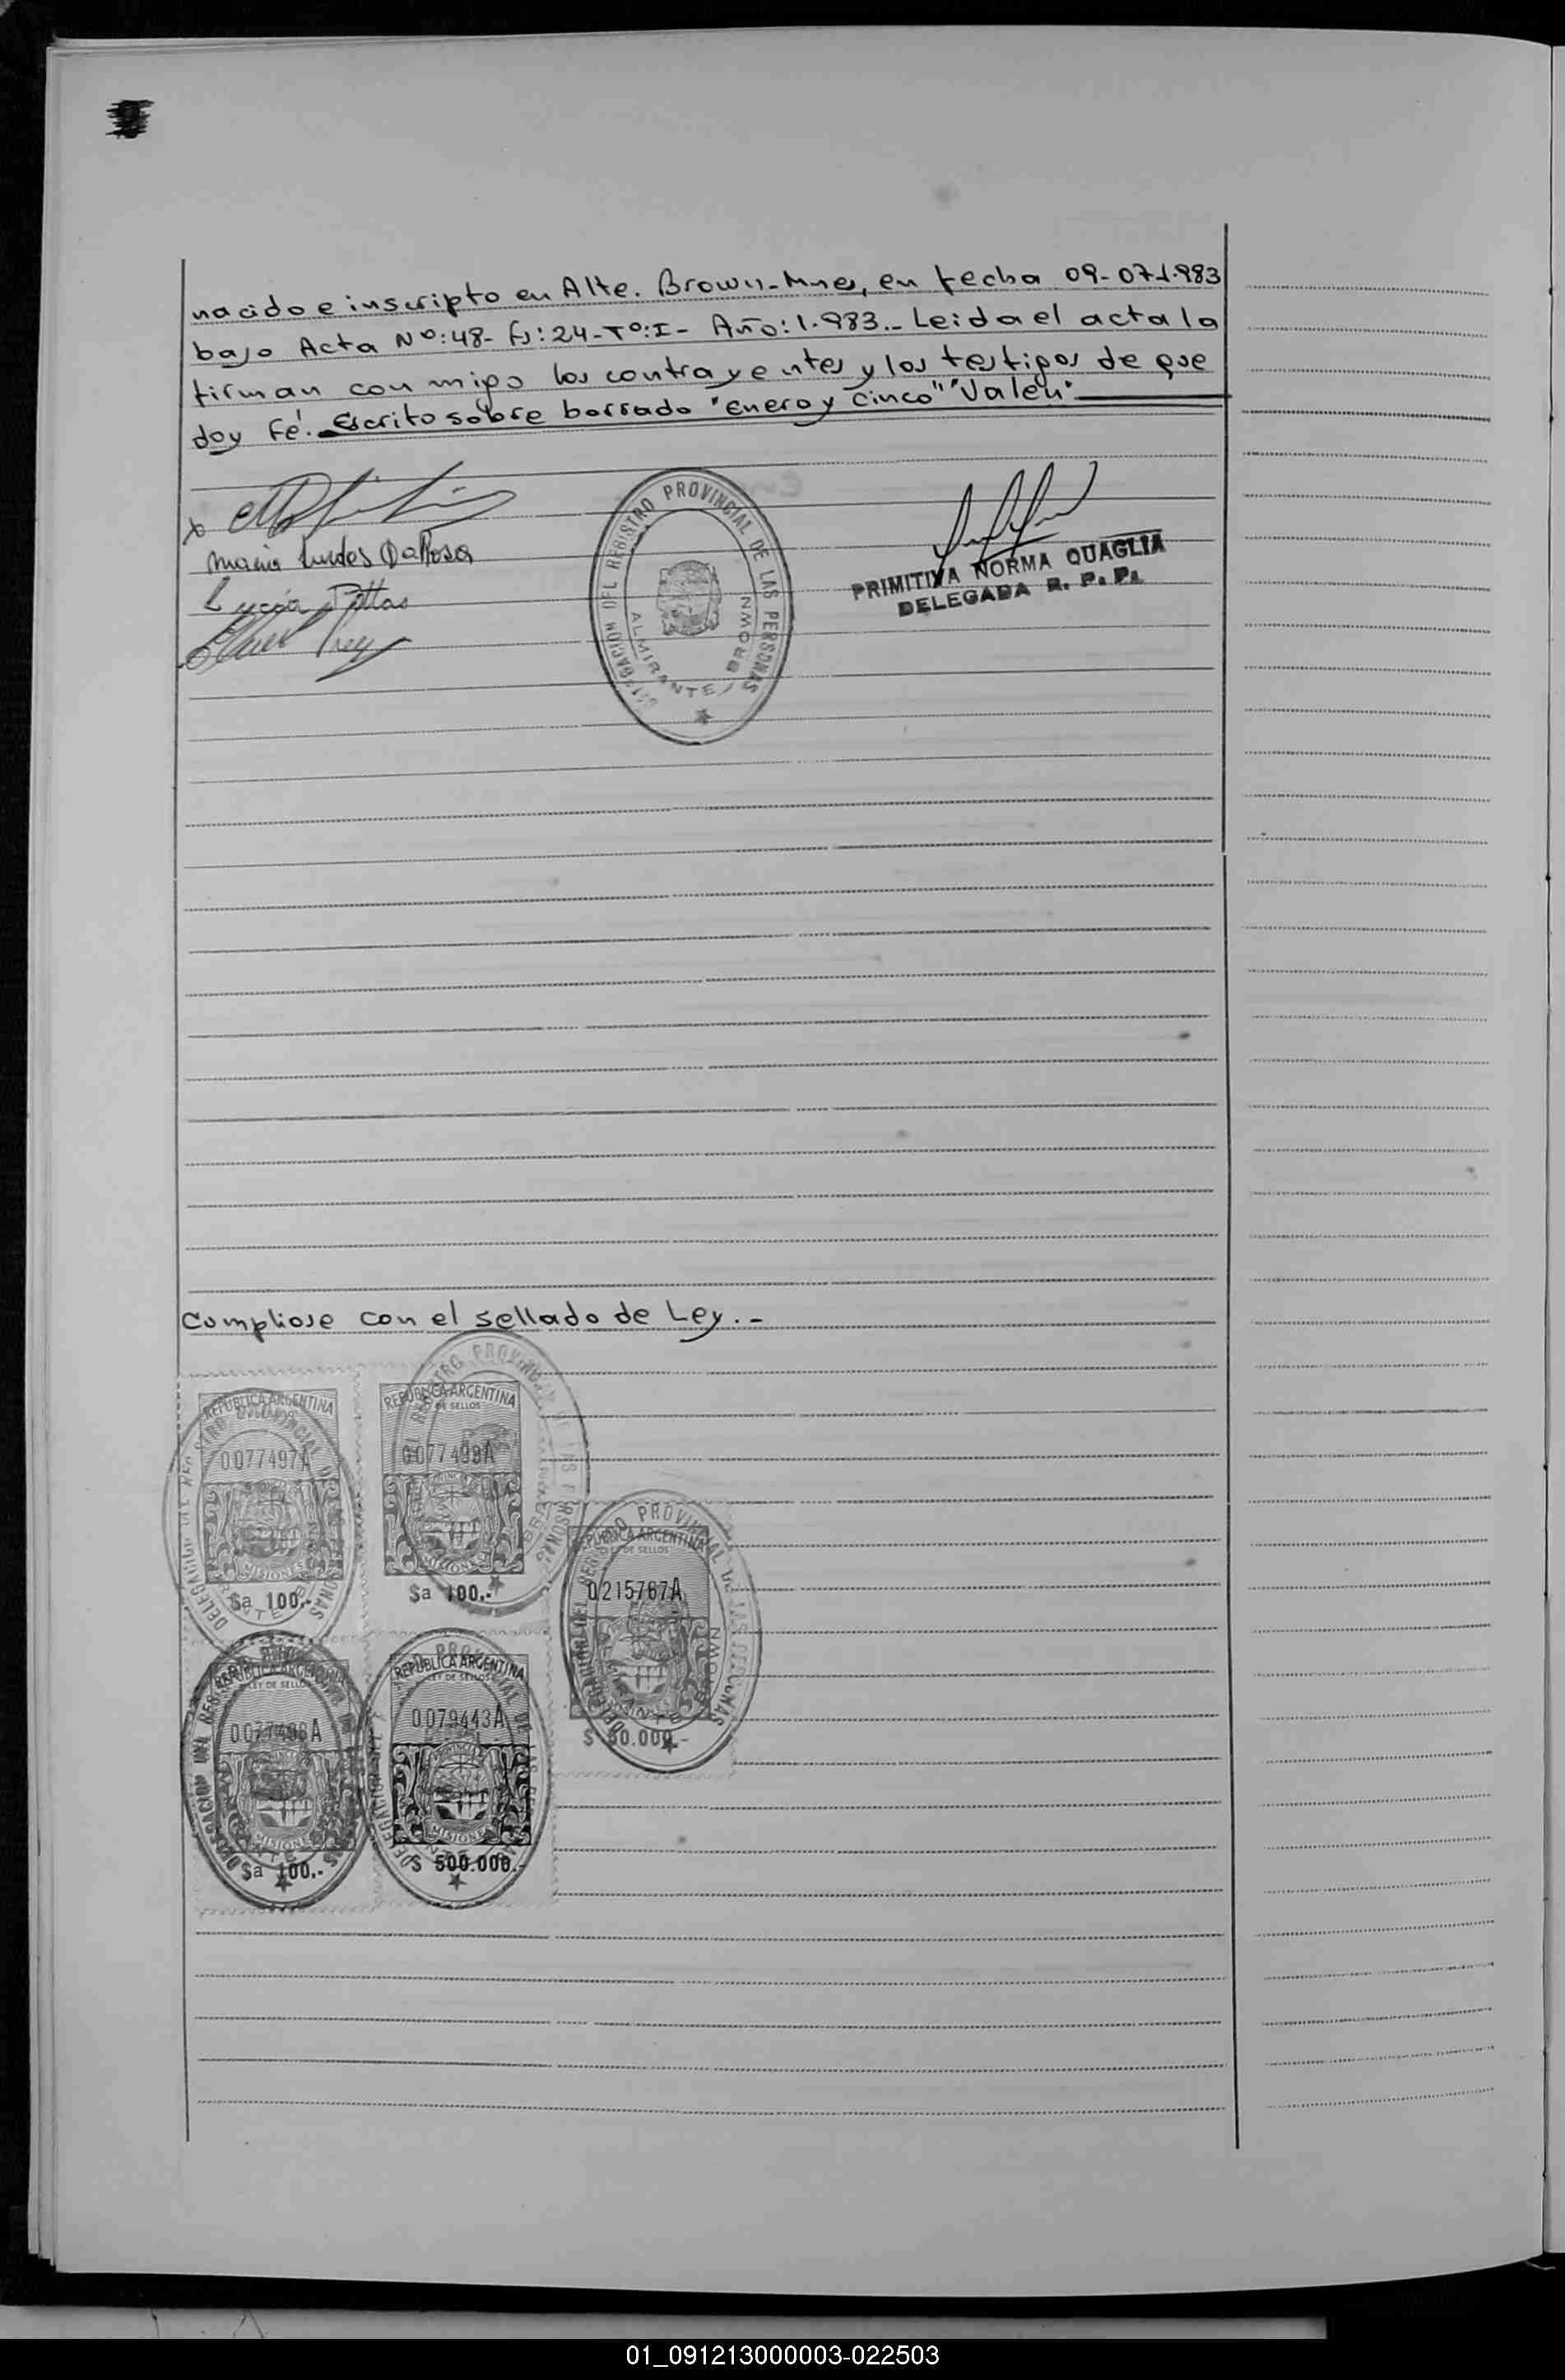 nacido e inscripto en Alte. Brown-Mnes, en fecha 09-07-1.983
bajo Acta Nº:48- Fº:24-Tº:I- Año:1.983.- Leida el acta la
firman con migo los contrayentes y los testigos de que
doy Fé!. Escrito sobre borrado "enero y cinco" "Valen"
DELEGACION DEL REGISTRO PROVINCIAL DE LAS PERSONAS
ALMIRANTE BROWN
PRIMITIVA NORMA QUAGLIA
DELEGADA R. P. P.
Maria Lurdes DaRosa
Compliose con el sellado de Ley.-
REPUBLICA ARGENTINA
0077497A
MISIONES
$a 100.-
REPUBLICA ARGENTINA
LEY DE SELLOS
MISIONES
$a 100.-
REPUBLICA ARGENTINA
LEY DE SELLOS
0215767A
$ 50.000.-
REPUBLICA ARGENTINA
LEY DE SELLOS
0077498A
MISIONES
$a 100.-
REPUBLICA ARGENTINA
LEY DE SELLOS
0079443A
MISIONES
$ 500.000.-
01_091213000003-022503